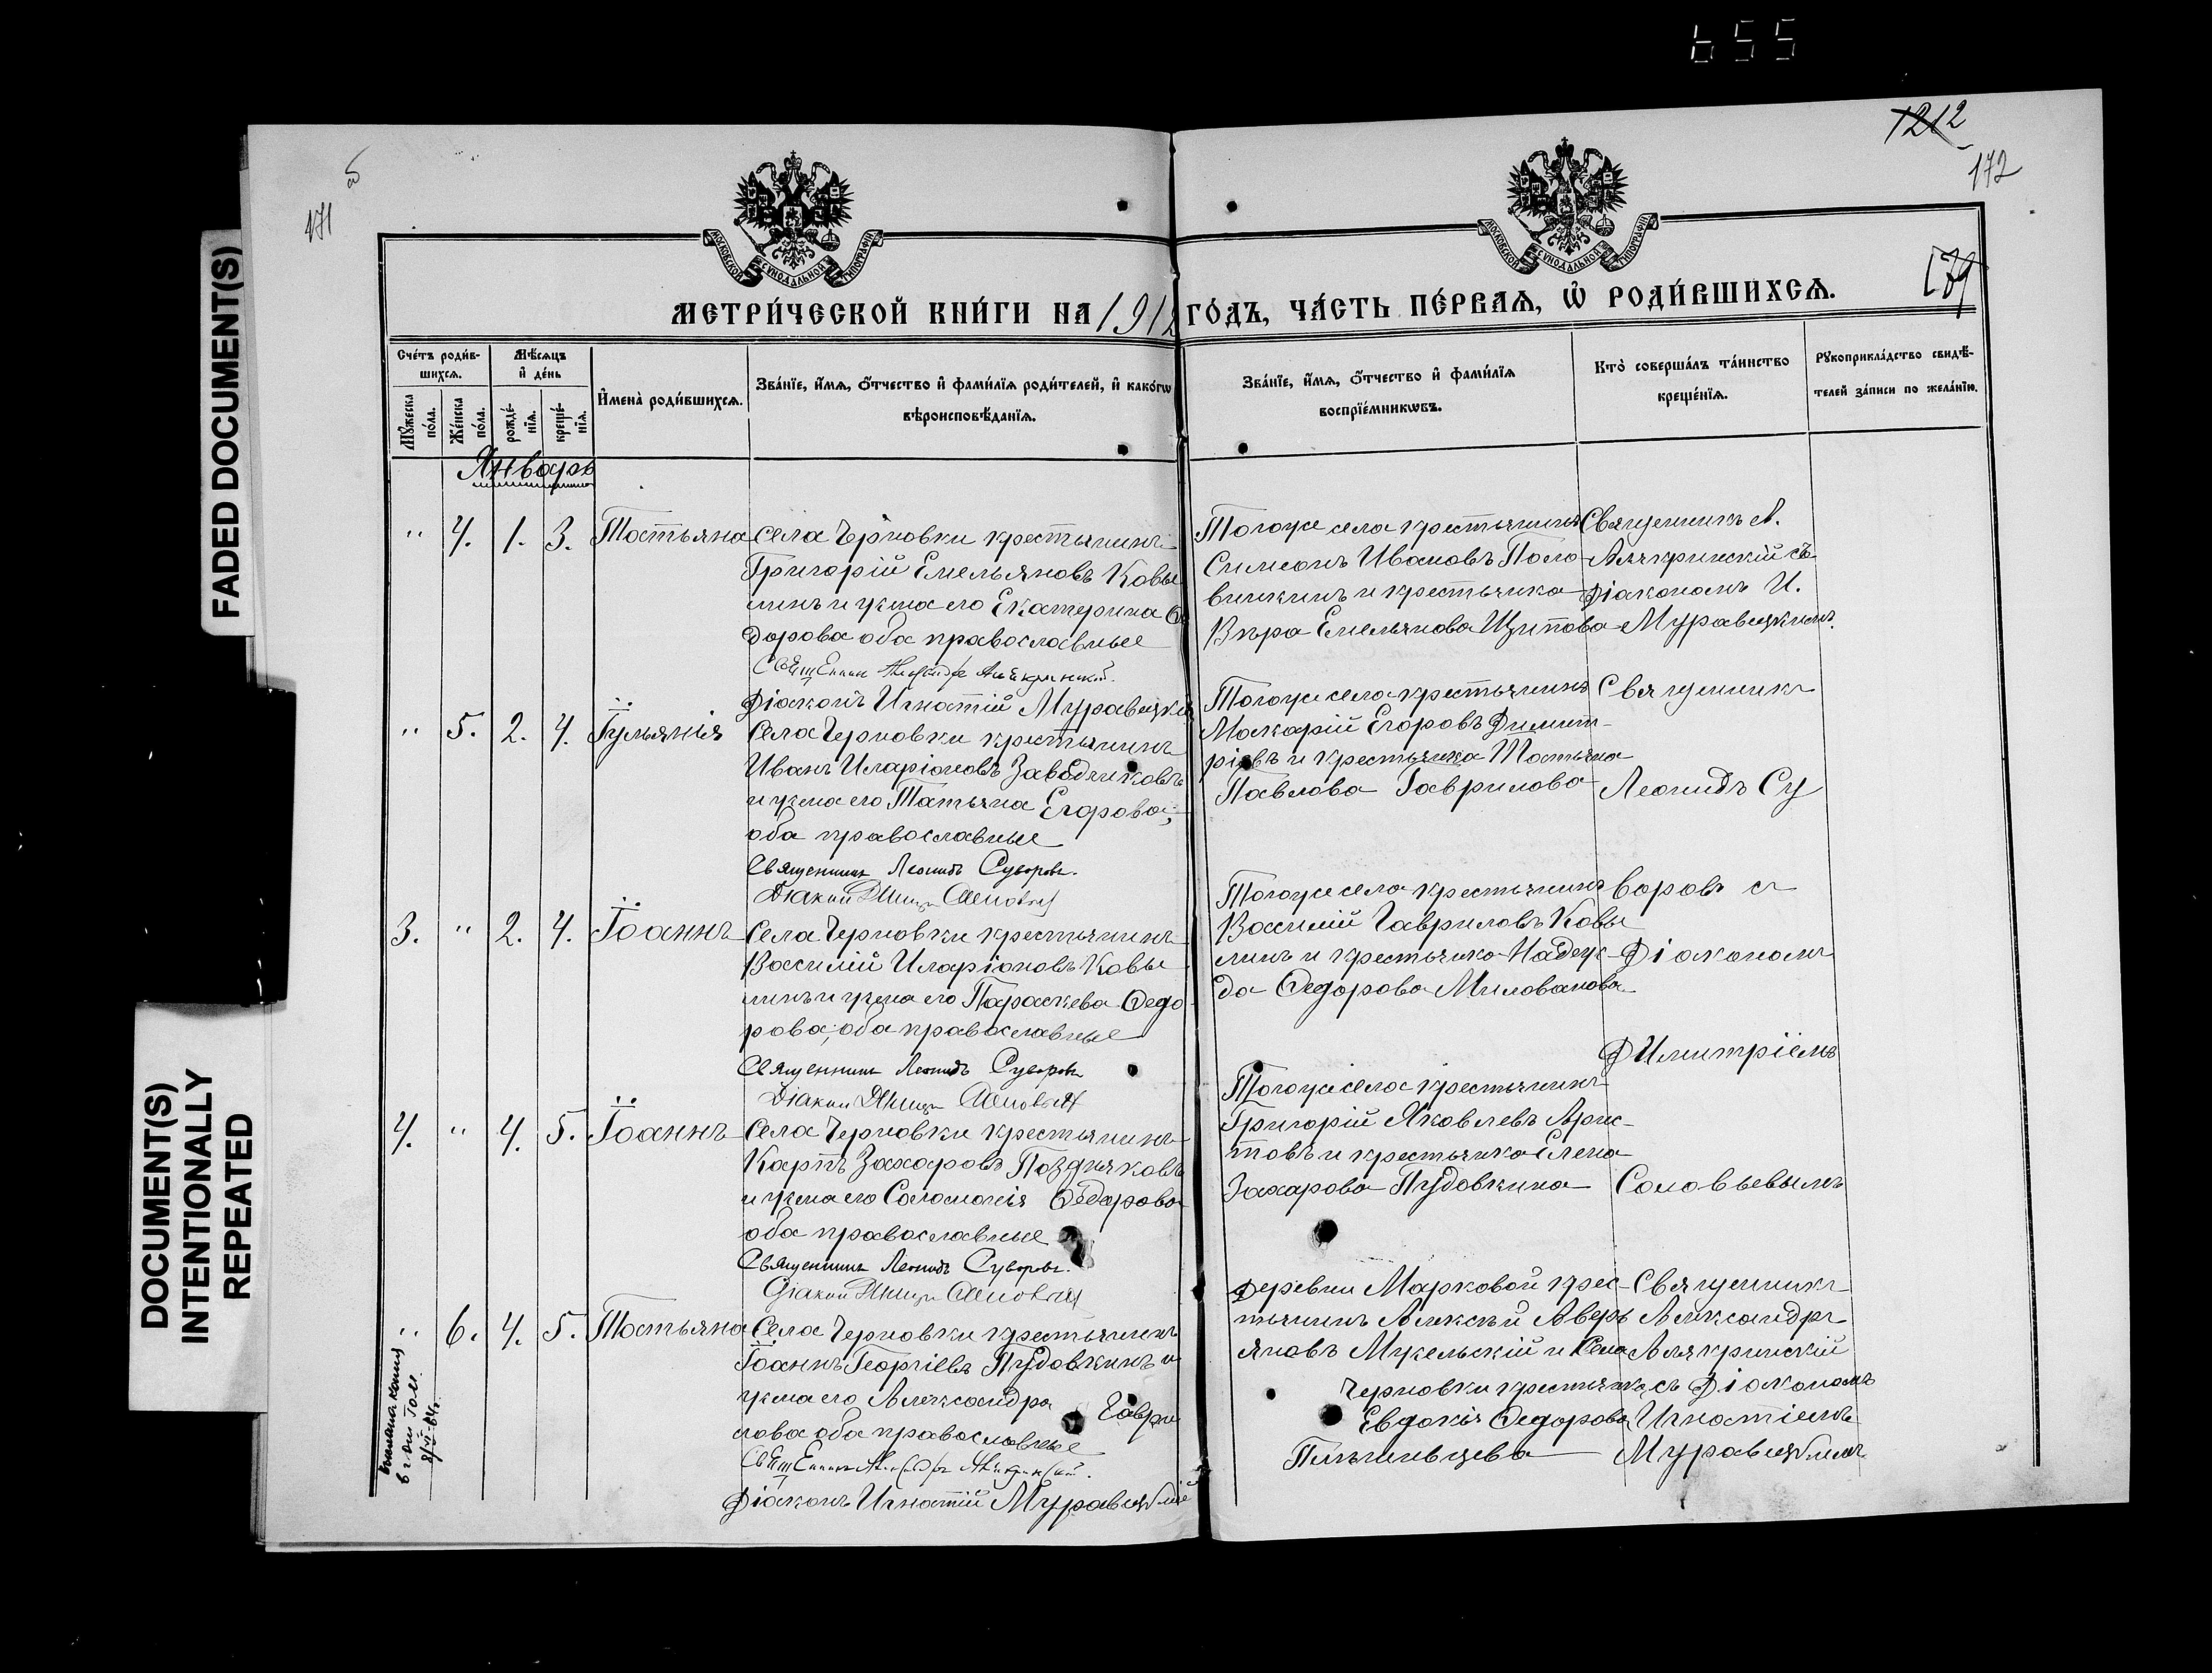 655
1212
172
171
179
МОСКОВСКОЙ СѴНОДАЛЬНОЙ ТИПОГРАФІИ
МОСКОВСКОЙ СѴНОДАЛЬНОЙ ТИПОГРАФІИ
FADED DOCUMENT(S)
DOCUMENT(S)
INTENTIONALLY
REPEATED
МЕТРИ́ЧЕСКОЙ КНИ́ГИ НА 1912 ГО́ДЪ, ЧА́СТЬ ПЕ́РВАѦ, Ѡ҆ РОДИ́ВШИХСѦ.
Сче́тъ роди́в-
шихсѧ.
Мꙋ́жеска
по́ла.
Же́нска
по́ла.
Мѣ́сѧцъ
и҆ де́нь
рожде́-
нїѧ.
креще́-
нїѧ.
И҆мена̀ роди́вшихсѧ.
Зва́нїе, и҆́мѧ, ѻ҆́тчество и҆ фамѝлїѧ роди́телей, и҆ како́гѡ
вѣроисповѣ́данїѧ.
Зва́нїе, и҆́мѧ, ѻ҆́тчество и҆ фамѝлїѧ
воспрїе́мникѡвъ.
Кто̀ соверша́лъ та́инство
креще́нїѧ.
Рꙋкоприкла́дство свидѣ́-
телей за́писи по жела́нїю.
Январь
" 4. 1. 3. Татьяна
Села Черновки крестьянинъ
Григорій Емельяновъ Ковы
линъ и жена его Екатерина Ѳе
дорова оба православные
Священникъ Александръ Алякринскій.
Діаконъ Игнатій Муравецкій
Тогоже села крестьянинъ
Симеонъ Ивановъ Поло-
винкинъ и крестьянка
Вѣра Емельянова Щипова
Священникъ А.
Алякринскій съ
Діакономъ И.
Муравецкимъ.
" 5. 2. 4. Іуліанія
Села Черновки крестьянинъ
Иванъ Иларіоновъ Заводчиковъ
и жена его Татьяна Егорова;
оба православные
Священникъ Леонидъ Суворовъ.
Діаконъ Дмитр Соловьев
Тогоже села крестьянинъ
Макарій Егоровъ Димит-
ріевъ и крестьянка Татьяна
Павлова Гаврилова
Священникъ
Леонидъ Су
3. " 2. 4. Іоаннъ
Села Черновки крестьянинъ
Василій Иларіоновъ Ковы
линъ и жена его Параскева Ѳедо
рова; оба православные
Священникъ Леонидъ Суворовъ
Діаконъ Дмитр Соловьев
Тогоже села крестьянинъ
Василій Гавриловъ Ковы
линъ и крестьянка Надеж-
да Ѳедорова Милованова
воровъ съ
Діакономъ
Димитріемъ
4. " 4. 5. Іоаннъ
Села Черновки крестьянинъ
Карпъ Захаровъ Поздняковъ
и жена его Соломонія Ѳедорова
оба православные
Священникъ Леонидъ Суворовъ.
Діаконъ Дмитр Соловьев
Тогоже села крестьянинъ
Григорій Яковлевъ Арис-
товъ и крестьянка Елена
Захарова Пудовкина
Соловьевымъ
" 6. 4. 5. Татьяна
Села Черновки крестьянинъ
Іоаннъ Георгіевъ Пудовкинъ и
жена его Александра Гаври
лова оба православные
Священникъ Александръ Алякринскій.
Діаконъ Игнатій Муравецкій
Деревни Марковой крес-
тьянинъ Алексѣй Аверь
яновъ Мукельскій и Села
Черновки крестьянка
Евдокія Ѳедорова
Священникъ
Александръ
Алякринскій
съ Діакономъ
Игнатіемъ
Муравецкимъ